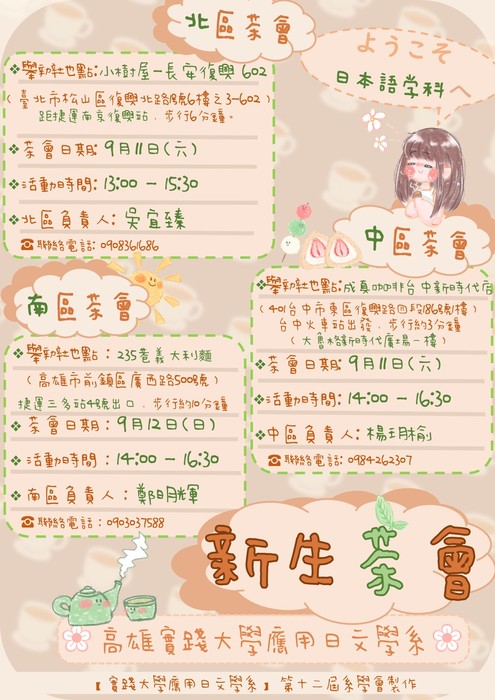 北區茶會
ようこそ
日本語学科へ
舉辦地點:小樹屋－長安復興602
（臺北市松山區復興北路1號6樓之3-602）
距捷運南京復興站，步行6分鐘。
茶會日期:9月11日(六)
活動時間:13:00 - 15:30
北區負責人:吳宜臻
聯絡電話:0908361686
中區茶會
舉辦地點:成真咖啡台中新時代店
（401台中市東區復興路四段186號1樓）
台中火車站出發，步行約3分鐘
（大魯格新時代廣場一樓）
茶會日期:9月11日(六)
活動時間:14:00 - 16:30
中區負責人:楊玥榆
聯絡電話:0984262307
南區茶會
舉辦地點：235巷義大利麵
（高雄市前鎮區廣西路500號）
捷運三多站4號出口，步行約10分鐘
茶會日期：9月12日(日)
活動時間：14:00 - 16:30
南區負責人：鄭明輝
聯絡電話：0903037588
新生茶會
高雄實踐大學應用日文學系
【實踐大學應用日文學系】第十二屆系學會製作